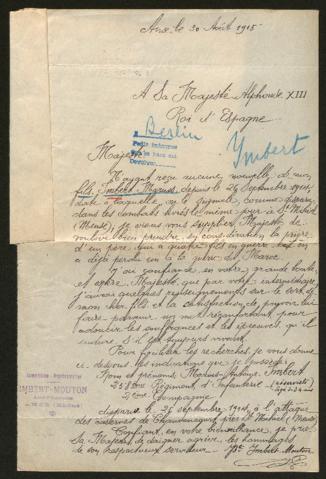 Anse, le 30 Août 1915
A Sa Majesté Alphonse XIII
Roi d'Espagne
Berlin
Imbert
Majesté
N'ayant reçu aucune nouvelle de mon
fils, Imbert Marius, depuis le 24 Septembre 1914,
date à laquelle
dans les combats livrés le même jour à St Mihiel
(Meuse) je viens vous supplier Majesté de
vouloir bien prendre en considération la prière
d'un père, qui a quatre fils en guerre dont un
a déjà perdu la vie au Maroc
J'ai confiance en votre grande bonté,
et espère Majesté, que par votre entremise
j'aurai quelques renseignements sur le sort
mon cher fils et la satisfaction de pouvoir lui
faire parvenir un mot réconfortant pour
adoucir les souffrances et les qu'il
endure s'il est toujours vivant.
Pour faciliter les recherches je vous donne
ci-dessous les indications que je possède
Nom et prénoms, Marius Antoine Imbert
Régiment d'Infanterie
21ème Compagnie
disparu le 25 septembre 1914, à l'attaque
des casernes de Chauvoncourt près St Mihiel (Meuse)
Confiant en votre bienveillance, je prie
Sa Majesté de daigner agréer les hommages
de son respectueux serviteur Imbert-Mouton
IMBERT-MOUTON